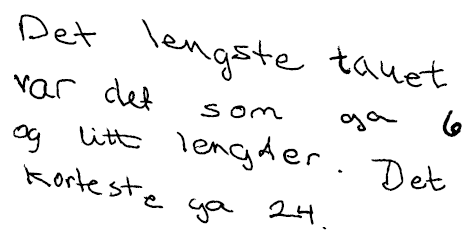 Det lengste tauet
var det som ga 6
og litt lengder. Det
korteste ga 24.